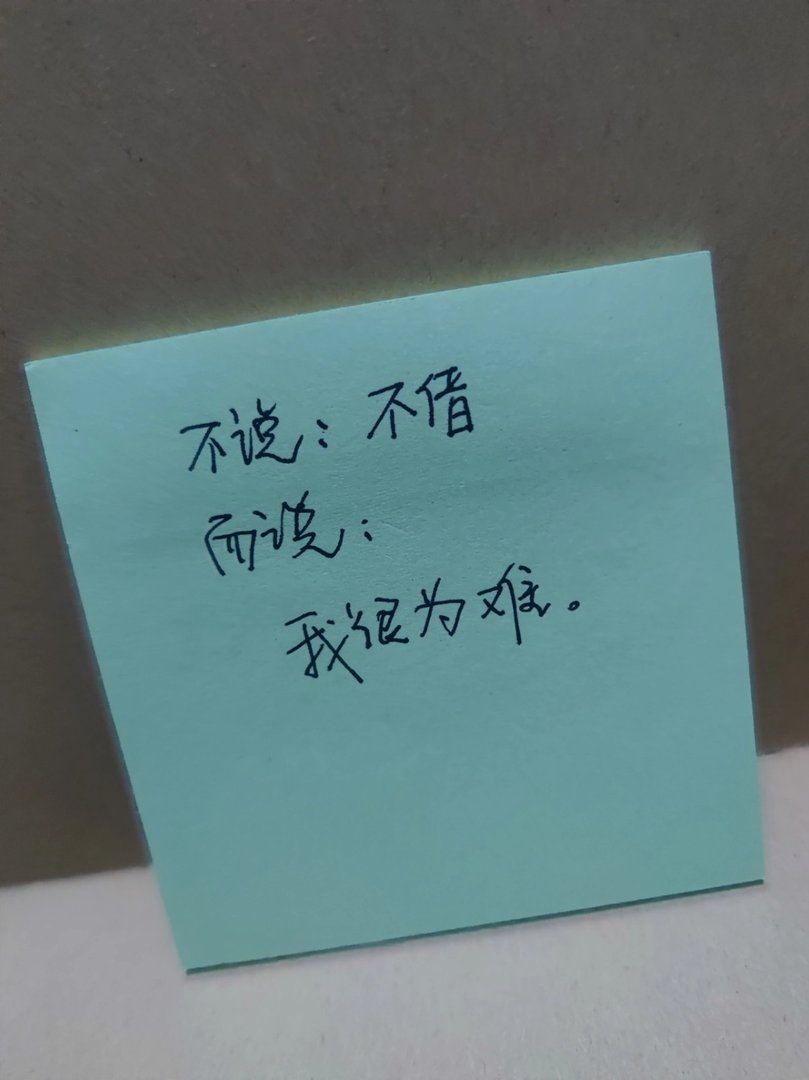 不说：不借
而说：
我很为难。